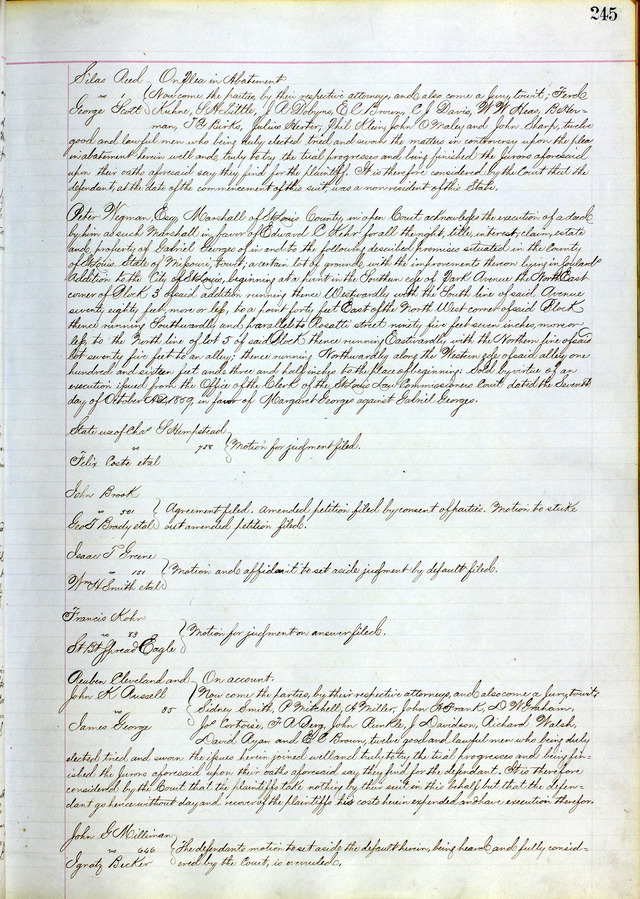 245
Silas Reed On Plea in Abatement
vs 1 Now come the parties, by their respective attorneys, and also come a Jury, towit; Ferd
George Scott Kuhne, G. H. Little, J A Dobyns, E C Brown, C J Davis, W W Heas, B
man, T Y Burks, Julius Herter, Phil Klein, John O'Maley and John Sharp, twelve
good and lawful men who being duly elected tried and sworn the matters in controversy upon the plea
in abatement herein well and truly to try the trial progresses and being finished the Jurors aforesaid
upon their oaths aforesaid say they find for the plaintiff. It is therefore considered by the Court that the
defendant, at the date of the commencement of this suit, was a non resident of this State.
Peter Wigman, Esq Marshall of St Louis County, in open Court acknowledges the execution of a deed
by him as such Marshall in favor of Edward C Kehr for all the right, title, interest, claim, estate
and property of Gabriel Georges of in and to the following described premises situated in the County
of St Louis State of Missouri, towit, a certain lot of ground, with the improvements thereon lying in Soulard
Addition to the City of St Louis, beginning at a point in the Southern edge of Park Avenue the North East
corner of Block 3 of said addition running thence Westwardly with the South line of said Avenue
seventy eight feet, more or less, to a point forty feet East of the North West corner of said Block
thence running Southwardly and parallel to Rosatti street ninety five feet seven inches, more or
less to the North line of lot 5 of said Block thence running Eastwardly with the Northern line of said
lot seventy five feet to an alley; thence running Northwardly along the Western edge of said alley one
hundred and sixteen feet and three and half inches to the Place of beginning: Sold by virtue of an
execution issued from the Office of the Clerk of the St Louis Law Commissioners Court dated the Seventh
day of October A.D. 1859, in favor of Margaret Georges against Gabriel Georges.
State use of Chas S Hempstead
vs 758 Motion for judgment filed.
Felix Coste etal
John Brook
vs 501 Agreement filed. Amended petition filed by consent of parties. Motion to strike
Geo T Brady etal out amended petition filed.
Isaac T Greene
vs 151 Motion and affidavit to set aside judgment by default filed.
Wm H Smith etal
Francis Kohn
vs 83 Motion for judgment on answer filed.
St. Bt Spread Eagle
Reuben Cleveland and On account.
John K Russell Now come the parties, by their respective attorneys, and also come a Jury, towit;
vs 85 Sidney Smith, P Mitchell, A Miller, John A Frank, D W Graham,
James George Jos Cortoise, F A Berg, John Runkle, J Davidson, Richard Walsh,
David Ryan and E C Brown, twelve good and lawful men who being duly
elected tried and sworn the issues herein joined well and truly to try the trial progresses and being fin-
ished the Jurors aforesaid upon their oaths aforesaid say they find for the defendant. It is therefore
considered by the Court that the plaintiffs take nothing by their suit in this behalf but that the defen-
dant go hence without day and recover of the plaintiffs his costs herein expended and have execution therefor.
John G Milliman
vs 666 The defendants motion to set aside the default herein, being heard and fully consid-
Ignatz Becker ered by the Court, is overruled.